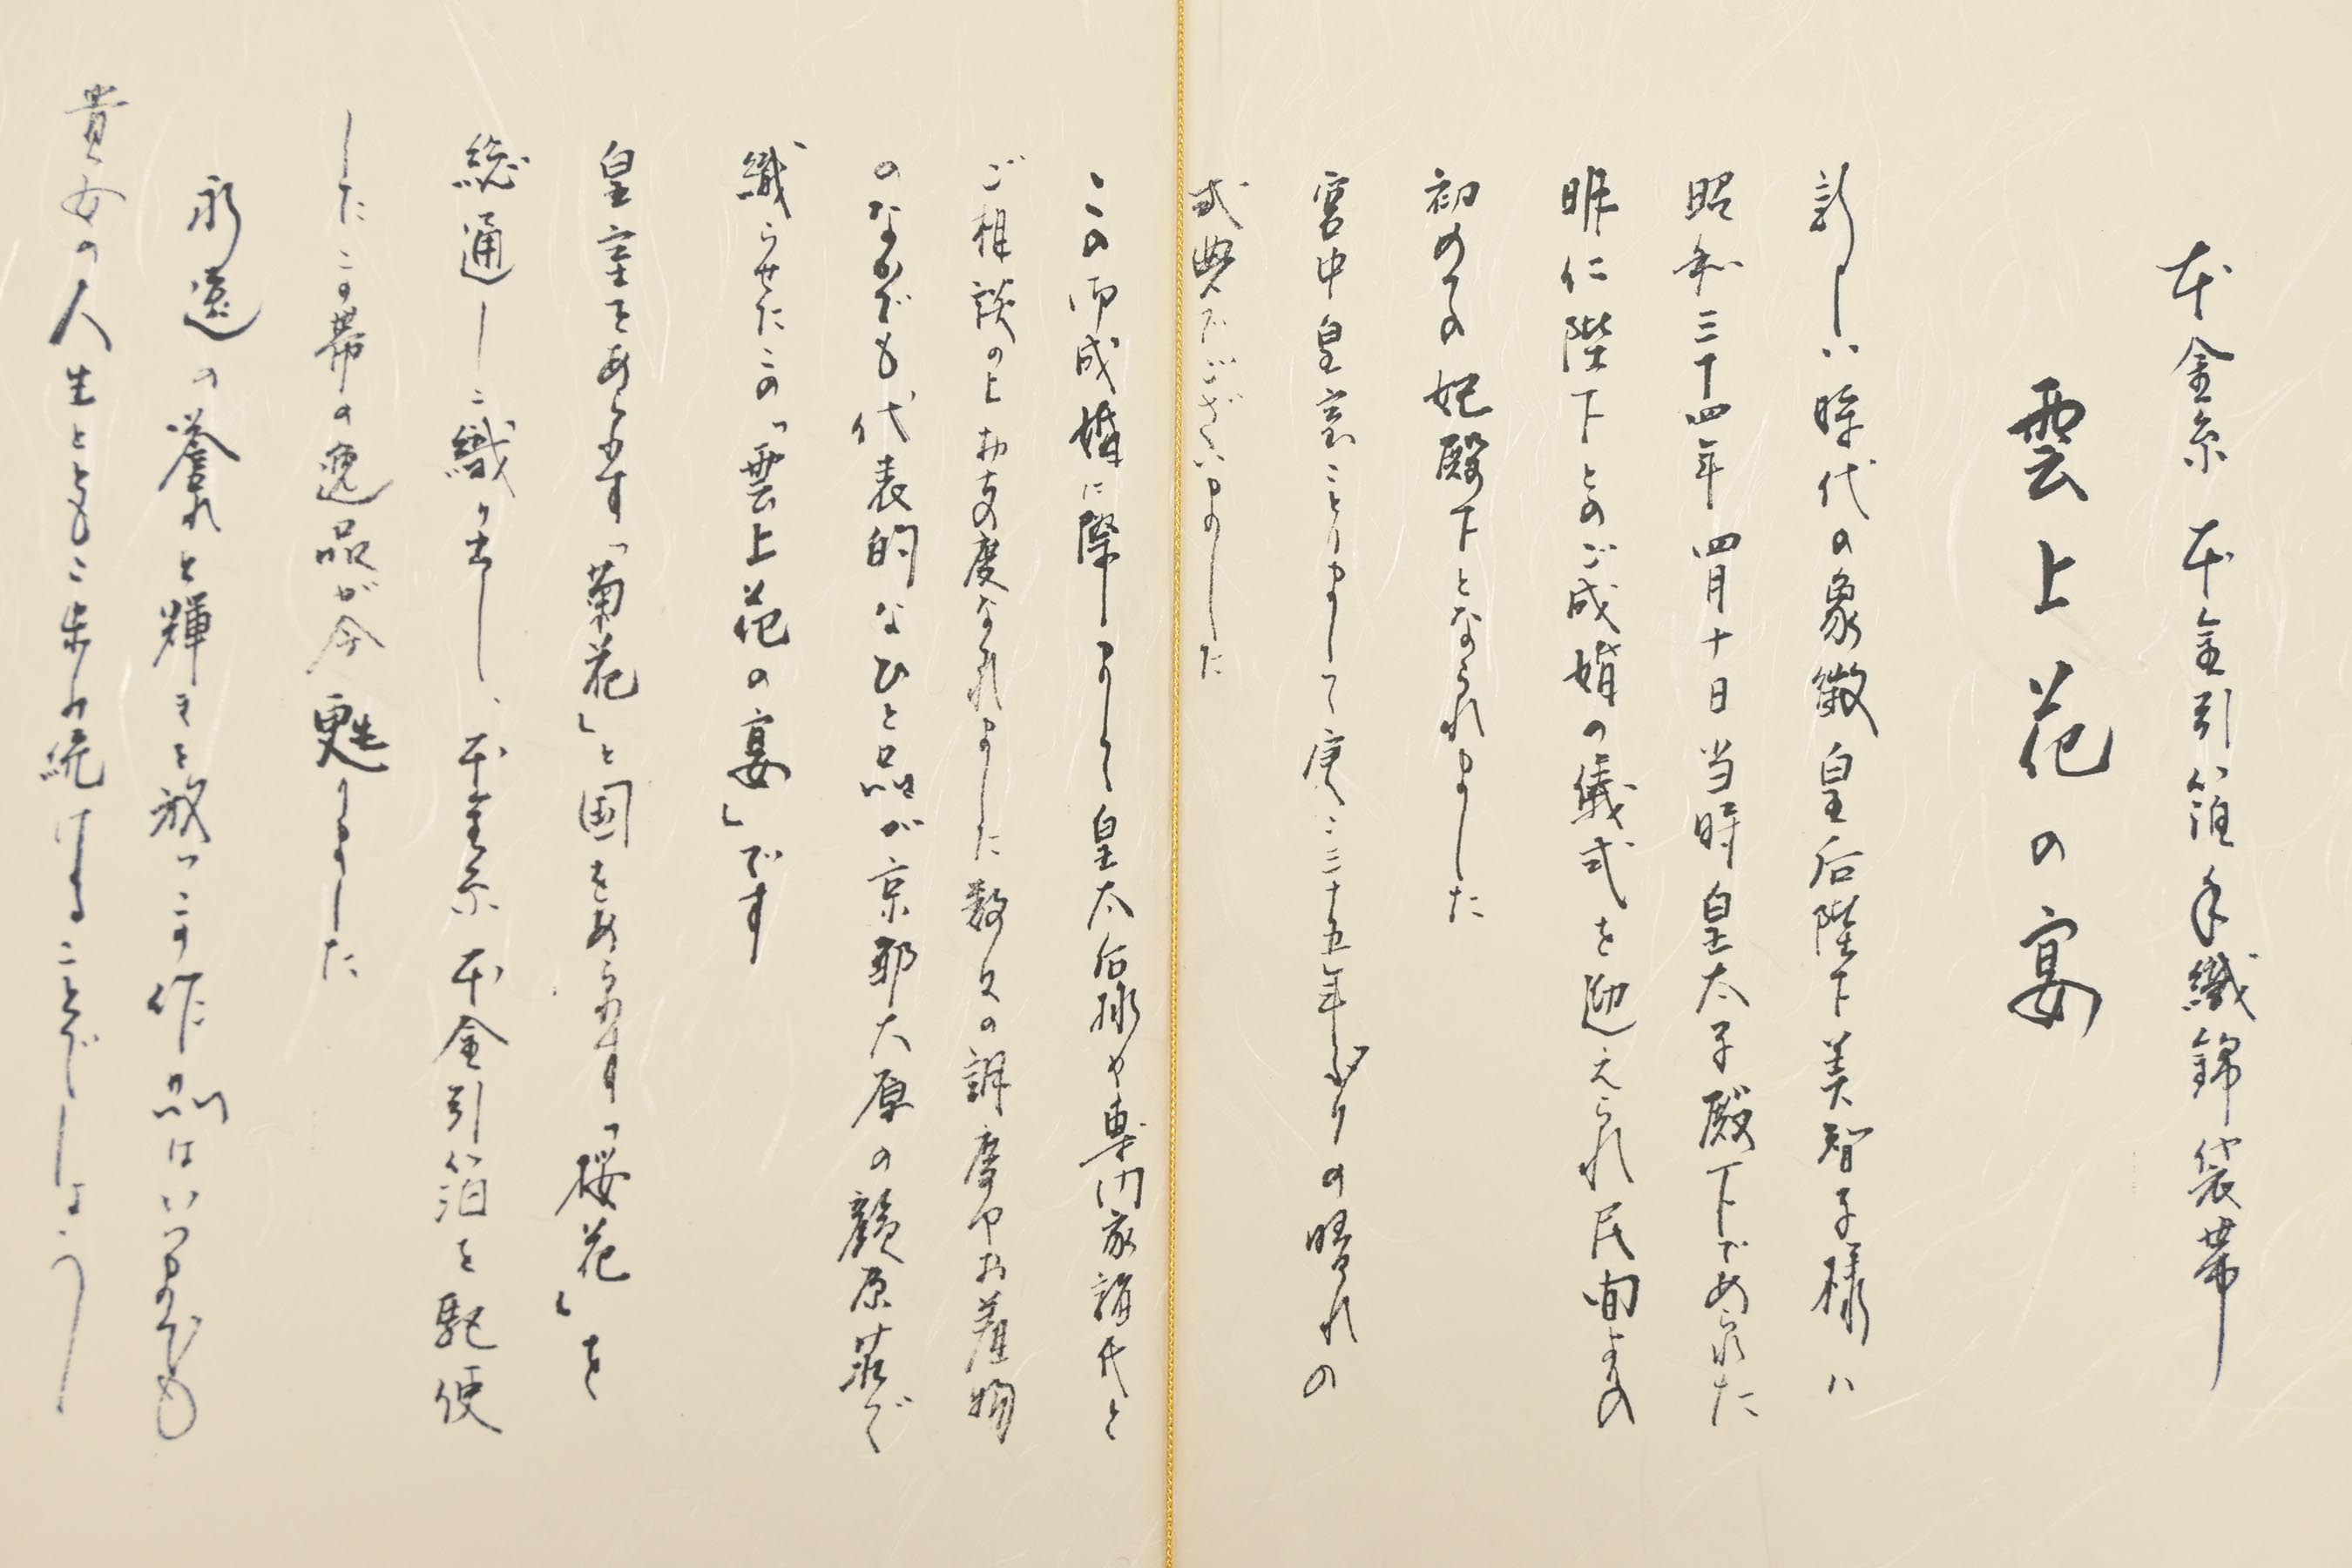 本金糸 本金引箔手織錦袋帯
雲上花の宴
新しい時代の象徴皇后陛下美智子様は
昭和三十四年四月十日当時皇太子殿下であられた
明仁陛下とのご成婚の儀式を迎えられ民間よりの
初めての妃殿下となられました
宮中皇室にとりまして実に三十五年ぶりの晴れの
式典でございました
この御成婚に際しまして皇太后様や専門家諸氏と
ご相談の上お支度なされました数々の調度やお着物
のなかでも代表的なひと品が京都大原の顔原荘で
織らせたこの「雲上花の宴」です
皇室をあらわす「菊花」と国をあらわす「桜花」を
総通しに織り出し、本金糸 本金引箔を駆使
したこの帯の逸品が今甦りました
永遠の誉れと輝きを放つこの作品はいつまでも
貴女の人生とともに歩み続けることでしょう